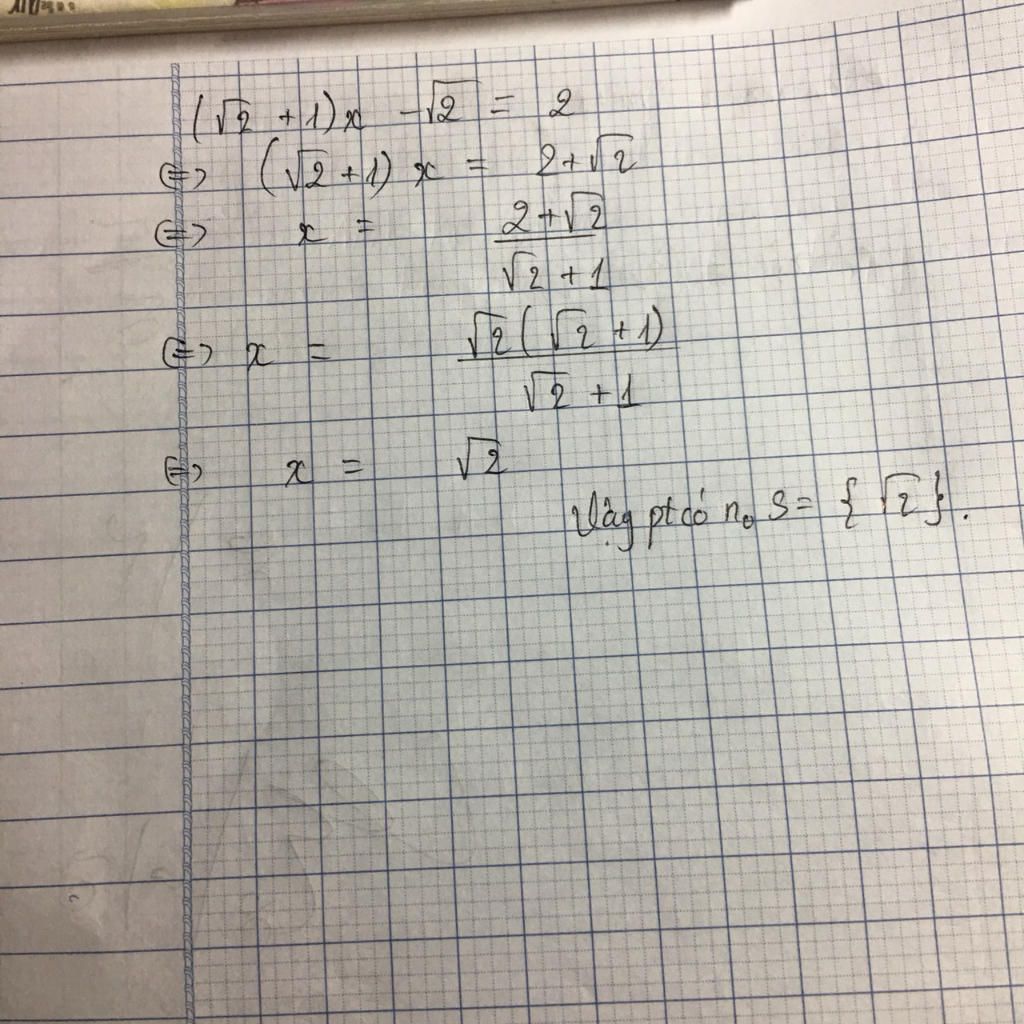 (√2 + 1)x - √2 = 2
⇔ (√2 + 1) x = 2 + √2
⇔ x = (2 + √2) / (√2 + 1)
⇔ x = √2(√2 + 1) / (√2 + 1)
⇔ x = √2
Vậy pt có n₀ S = {√2}.